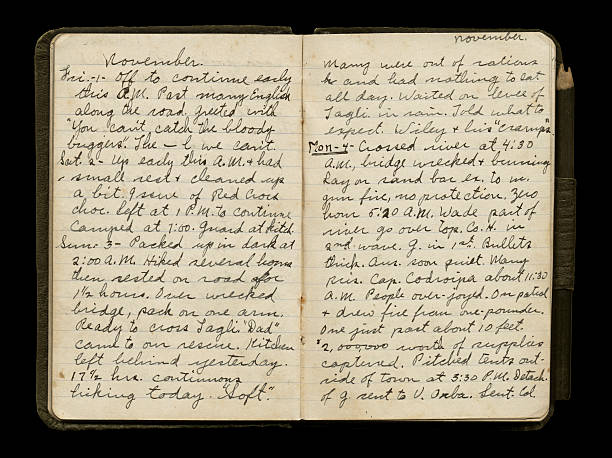 November.
Fri.-1- Off to continue early
this A.M. Past many English
along the road. greeted with
"You can't catch the bloody
buggers". The — l we can't.
Sat. 2- Up early this A.M. & had
small rest & cleaned up
a bit. Issue of Red Cross
choc. left at 1 P.M. to continue
Camped at 7:00. Guard at Kitch.
Sun. 3- Packed up in dark at
2:00 A.M. Hiked several hours
then rested on road for
1½ hours. Over wrecked
bridge, pack on one arm.
Ready to cross Tagli "Dad"
came to our rescue. Kitchen
left behind yesterday.
17½ hrs. continuous
hiking today. "Soft".
November.
Many were out of rations
& and had nothing to eat
all day. Waited on levee of
Tagli. in rain. Told what to
expect. Wiley & his "cramps".
Mon-4- Crossed river at 4:30
A.M., bridge wrecked & burning
Lay on sand bar ex. to m.
gun fire, no protection. Zero
hour 5:20 A.M. Wade part of
river go over top. Co. H. in
2nd wave. G. in 1st. Bullets
thick. Aus. soon quiet. Many
pris. Cap. Codroipa about 11:30
A.M. People over-joyed. On patrol
& drew fire from one-pounder.
One just past about 10 feet.
$2,000,000 worth of supplies
captured. Pitched tents out-
side of town at 3:30 P.M. Detach.
of G. sent to V. Orba. Sent. Col.